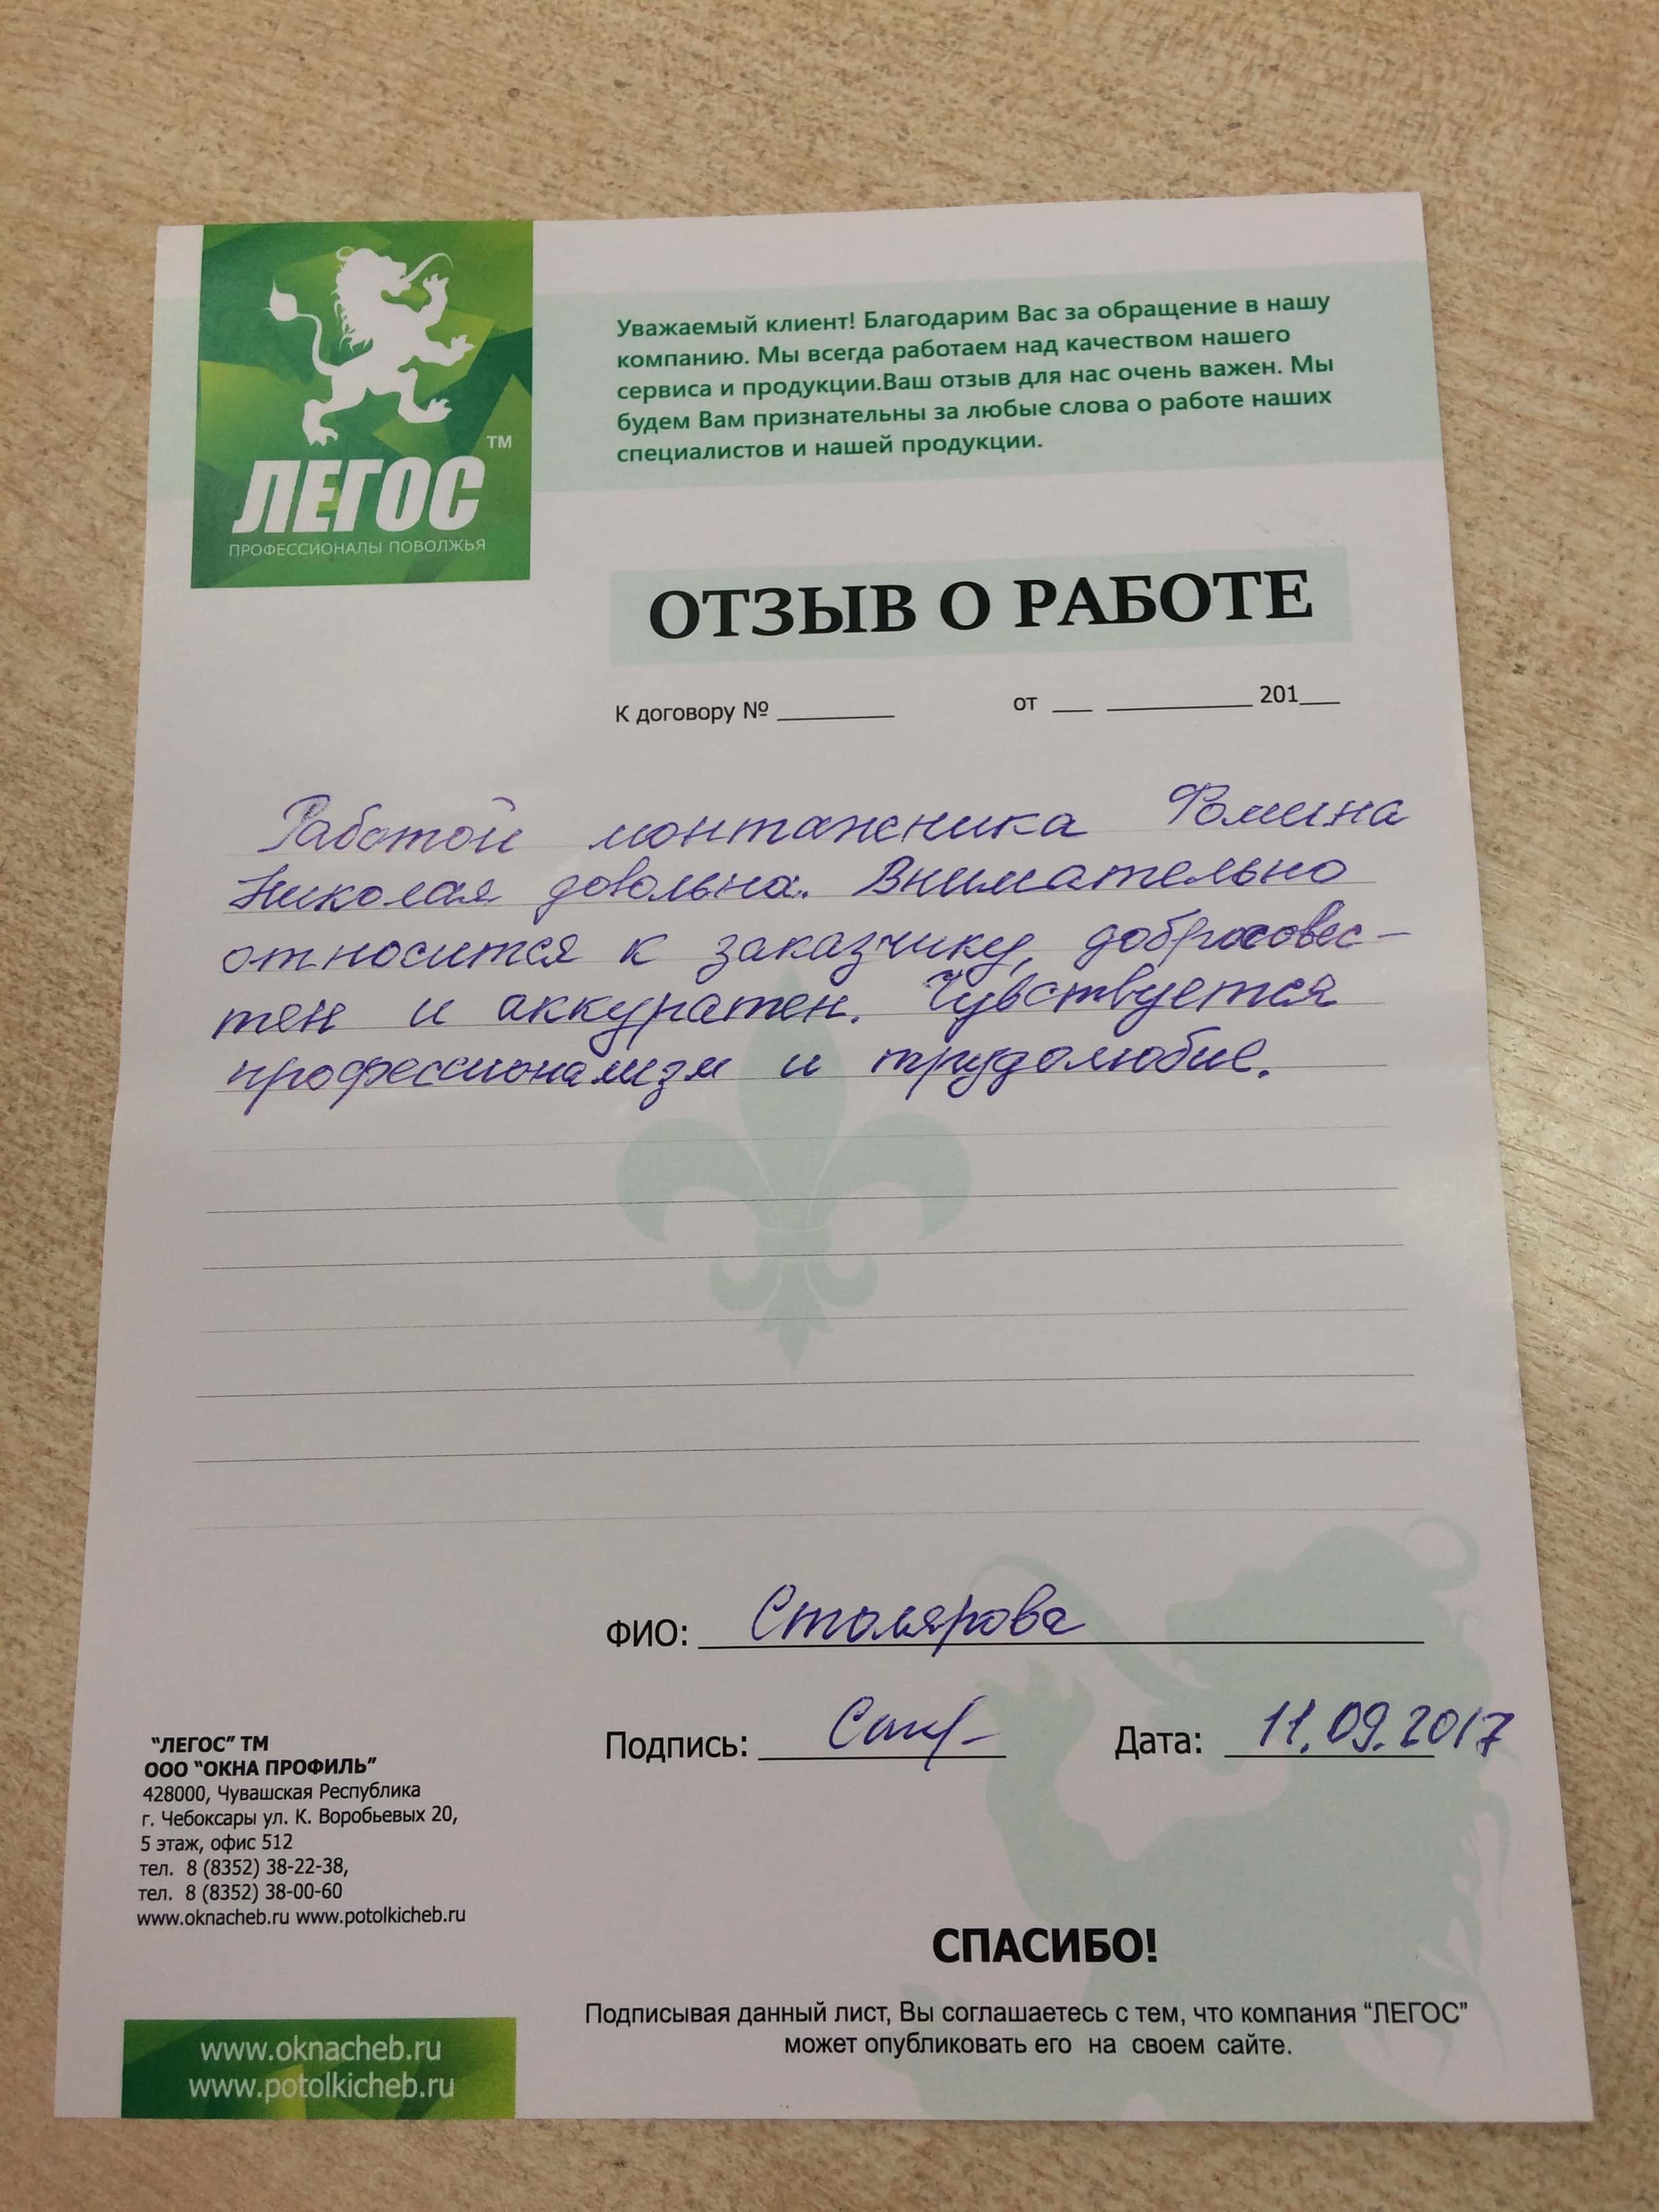 ЛЕГОС™
ПРОФЕССИОНАЛЫ ПОВОЛЖЬЯ
Уважаемый клиент! Благодарим Вас за обращение в нашу
компанию. Мы всегда работаем над качеством нашего
сервиса и продукции.Ваш отзыв для нас очень важен. Мы
будем Вам признательны за любые слова о работе наших
специалистов и нашей продукции.
ОТЗЫВ О РАБОТЕ
К договору № ________ от ___ __________ 201___
Работой монтажника Фомина
Николая довольна. Внимательно
относится к заказчику, добросовес-
тен и аккуратен. Чувствуется
профессионализм и трудолюбие.
ФИО: Столярова
Подпись: Дата: 11.09.2017
"ЛЕГОС" ТМ
ООО "ОКНА ПРОФИЛЬ"
428000, Чувашская Республика
г. Чебоксары ул. К. Воробьевых 20,
5 этаж, офис 512
тел. 8 (8352) 38-22-38,
тел. 8 (8352) 38-00-60
www.oknacheb.ru www.potolkicheb.ru
СПАСИБО!
Подписывая данный лист, Вы соглашаетесь с тем, что компания "ЛЕГОС"
может опубликовать его на своем сайте.
www.oknacheb.ru
www.potolkicheb.ru